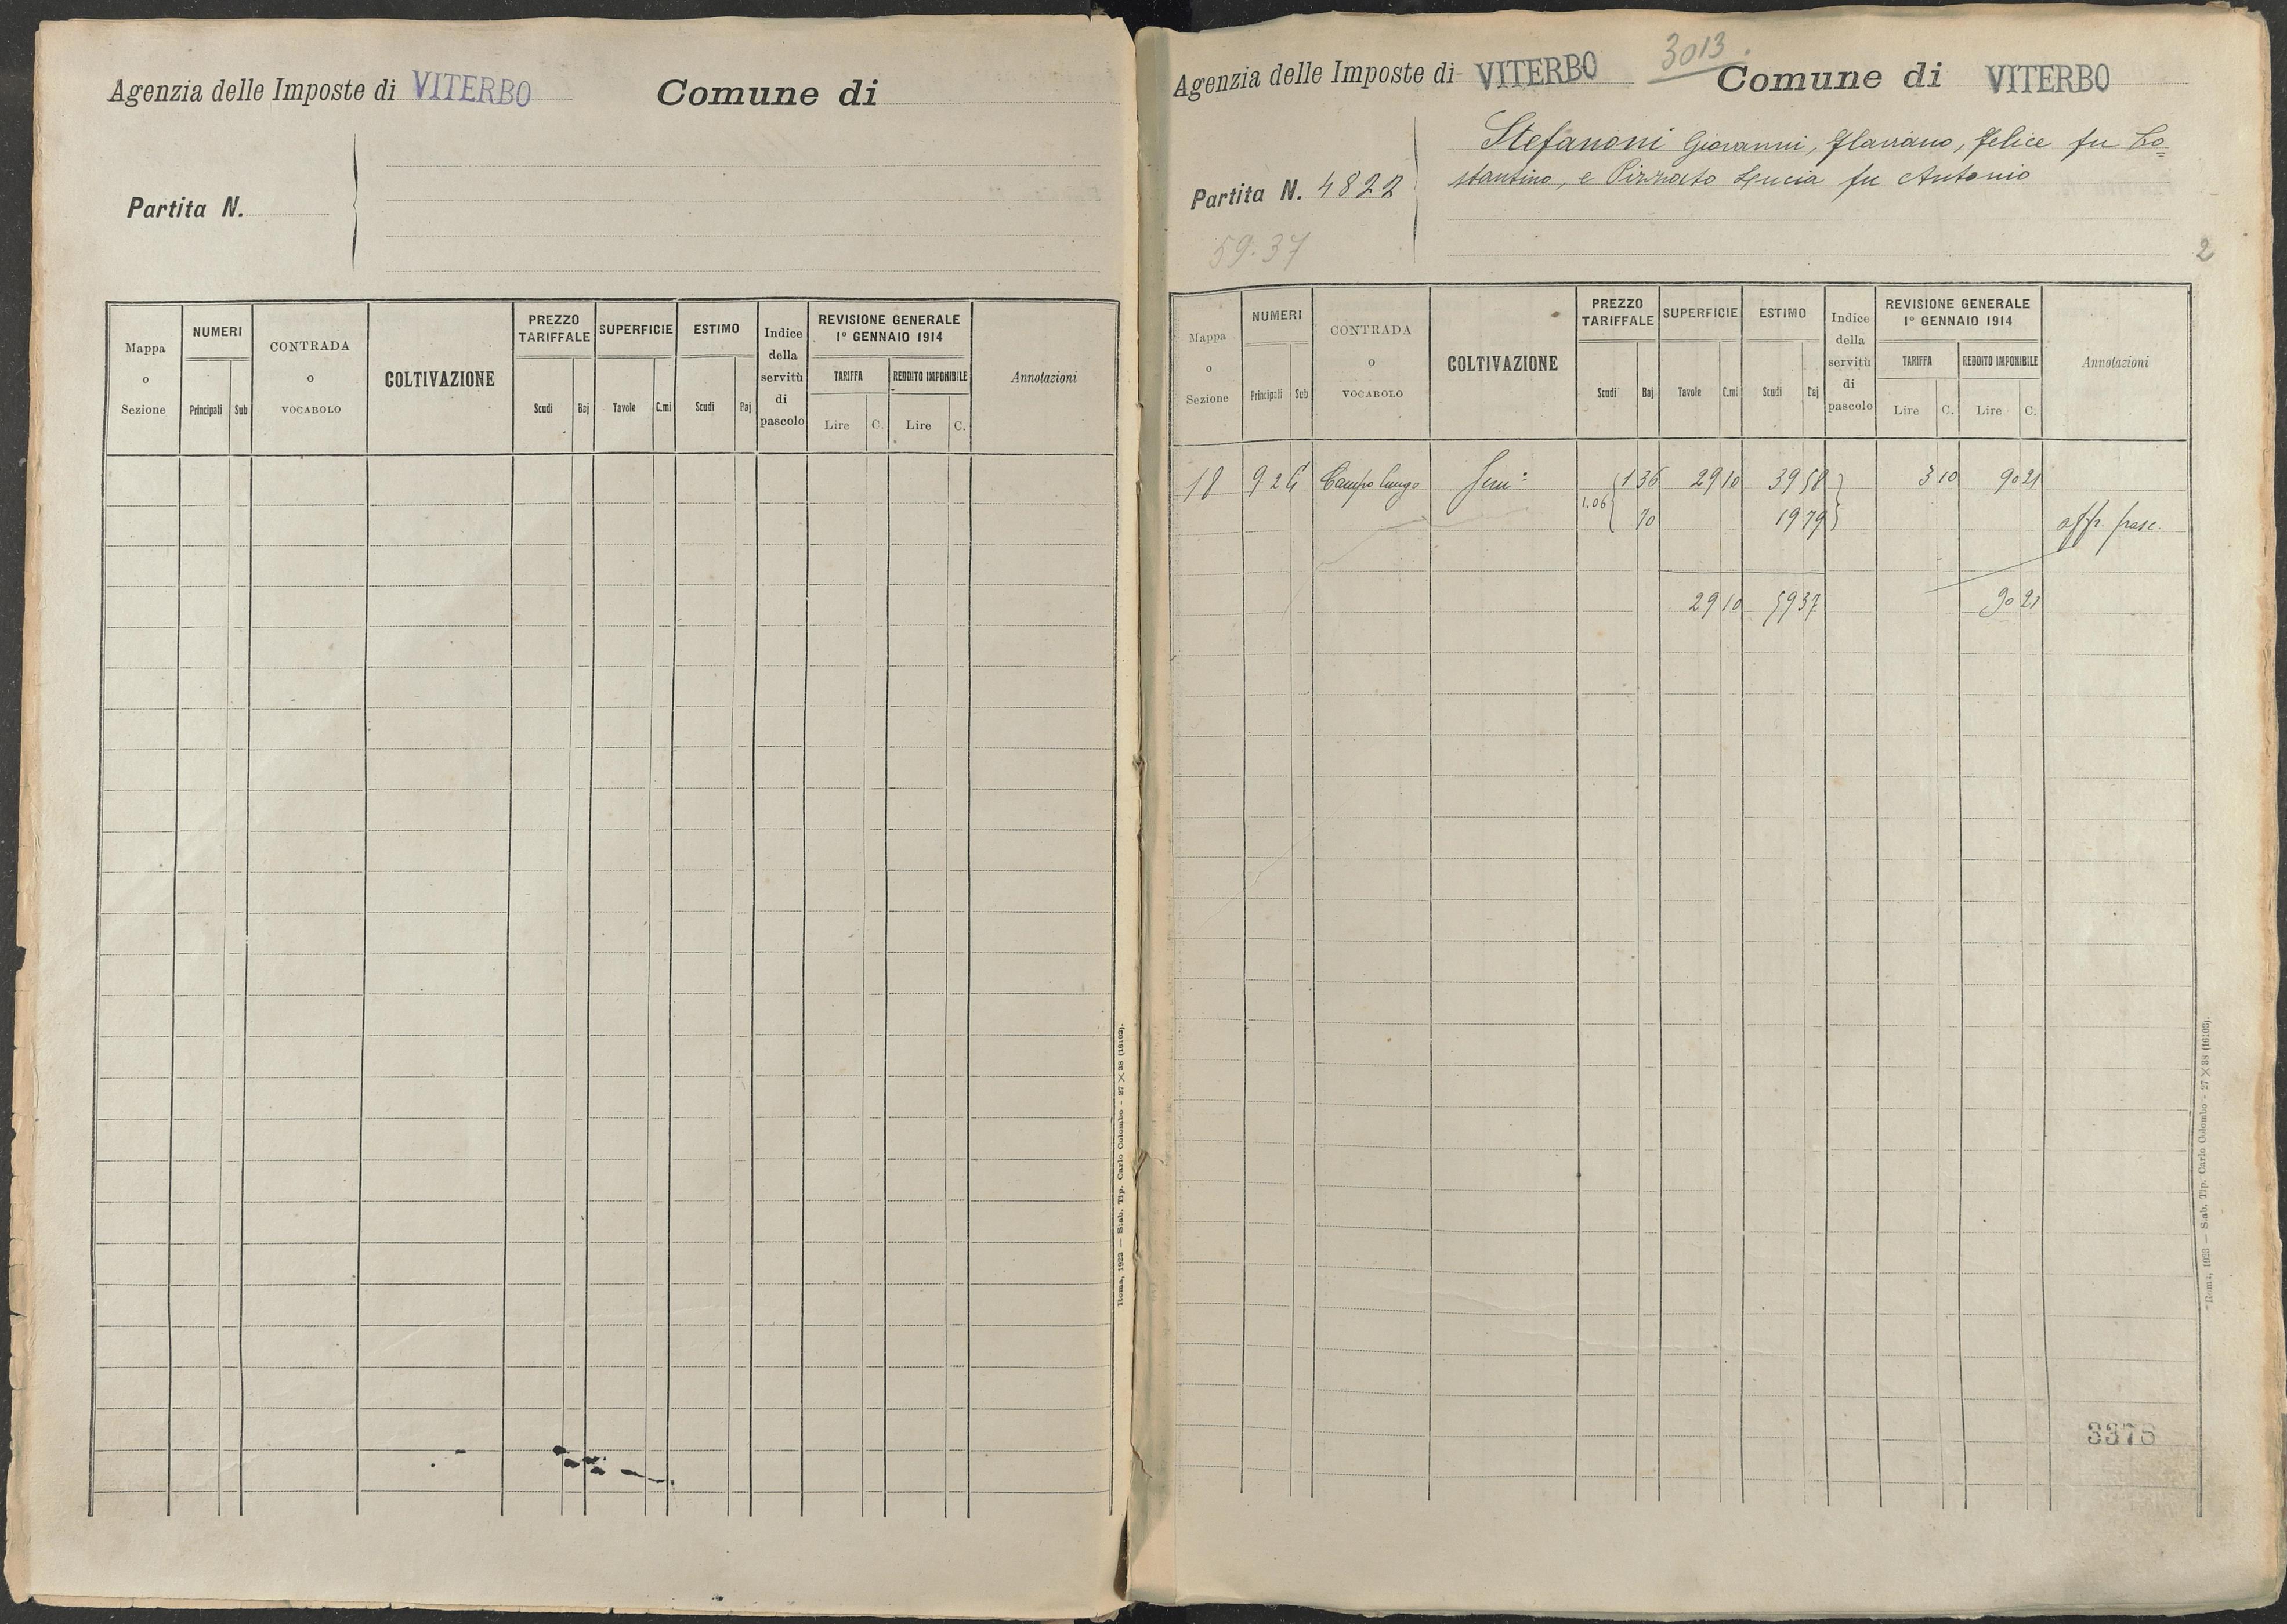 Agenzia delle Imposte di VITERBO Comune di
Partita N.
Mappa o Sezione
NUMERI
Principali Sub
CONTRADA o VOCABOLO
COLTIVAZIONE
PREZZO TARIFFALE
Scudi Baj
SUPERFICIE
Tavole C.mi
ESTIMO
Scudi Baj
Indice della servitù di pascolo
REVISIONE GENERALE 1º GENNAIO 1914
TARIFFA
Lire C.
REDDITO IMPONIBILE
Lire C.
Annotazioni
Roma, 1923 — Stab. Tip. Carlo Colombo - 27 × 38 (16103).
3013
Agenzia delle Imposte di VITERBO Comune di VITERBO
Stefanoni Giovanni, Flaviano, Felice fu Co=
stantino, e Pizzato Lucia fu Antonio
Partita N. 4822
59.37
2
Mappa o Sezione
NUMERI
Principali Sub
CONTRADA o VOCABOLO
COLTIVAZIONE
PREZZO TARIFFALE
Scudi Baj
SUPERFICIE
Tavole C.mi
ESTIMO
Scudi Baj
Indice della servitù di pascolo
REVISIONE GENERALE 1º GENNAIO 1914
TARIFFA
Lire C.
REDDITO IMPONIBILE
Lire C.
Annotazioni
18 926 Campo lungo Sem: 1 36 29 10 39 58 3 10 90 21
1.06 70 19 79 aff. pasc.
29 10 59 37 90 21
3378
Roma, 1923 — Stab. Tip. Carlo Colombo - 27 × 38 (16103).